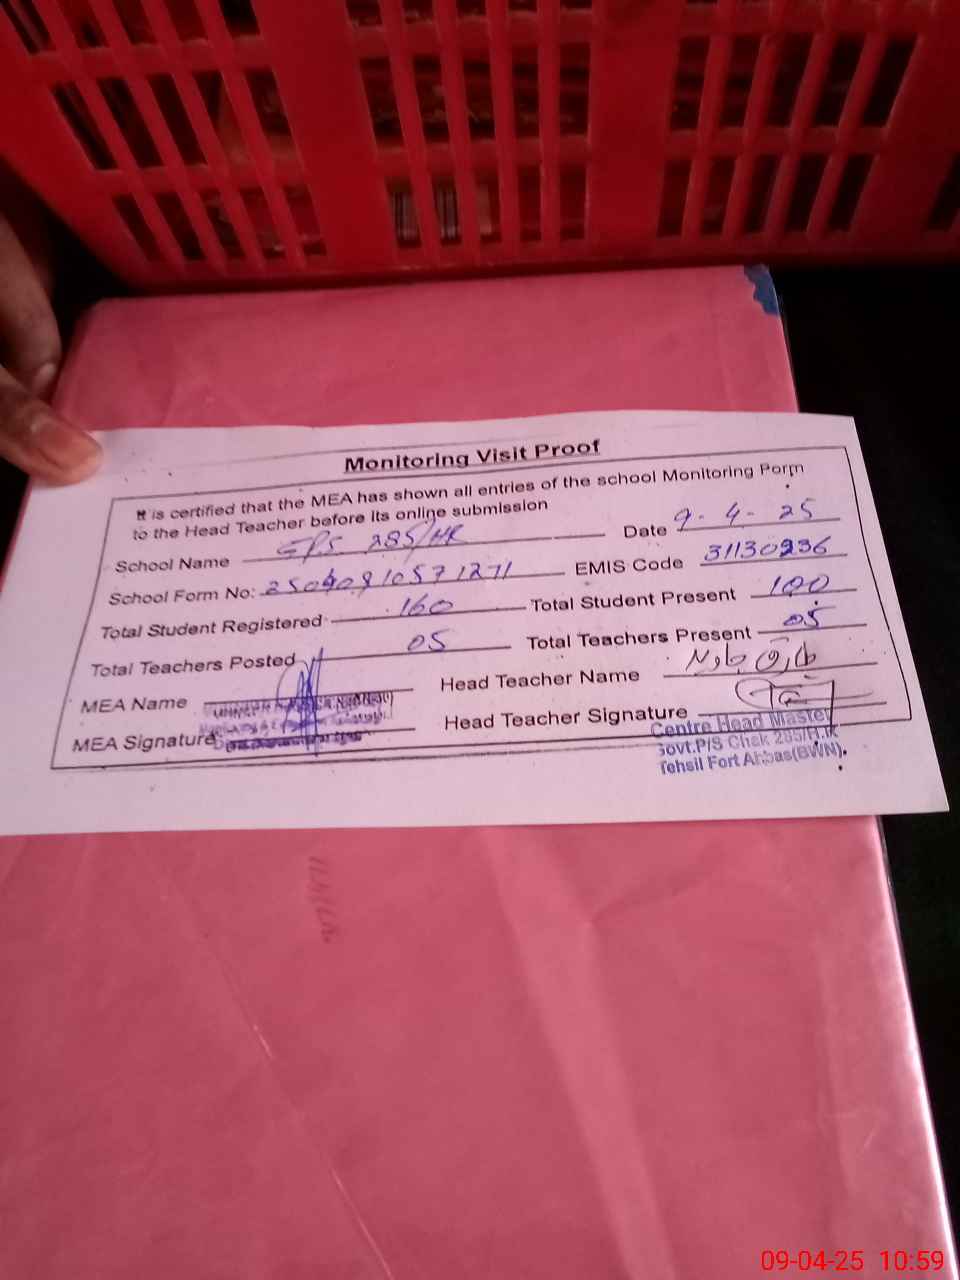 Monitoring Visit Proof
It is certified that the MEA has shown all entries of the school Monitoring Form
to the Head Teacher before its online submission
School Name GPS 285/HR Date 9-4-25
School Form No: 25040910571271 EMIS Code 31130236
Total Student Registered 160 Total Student Present 100
Total Teachers Posted 05 Total Teachers Present 05
MEA Name Head Teacher Name طارق جاوید
MEA Signature Head Teacher Signature
Centre Head Master
Govt.P/S Chak 285/H.R
Tehsil Fort Abbas(BWN).
09-04-25 10:59